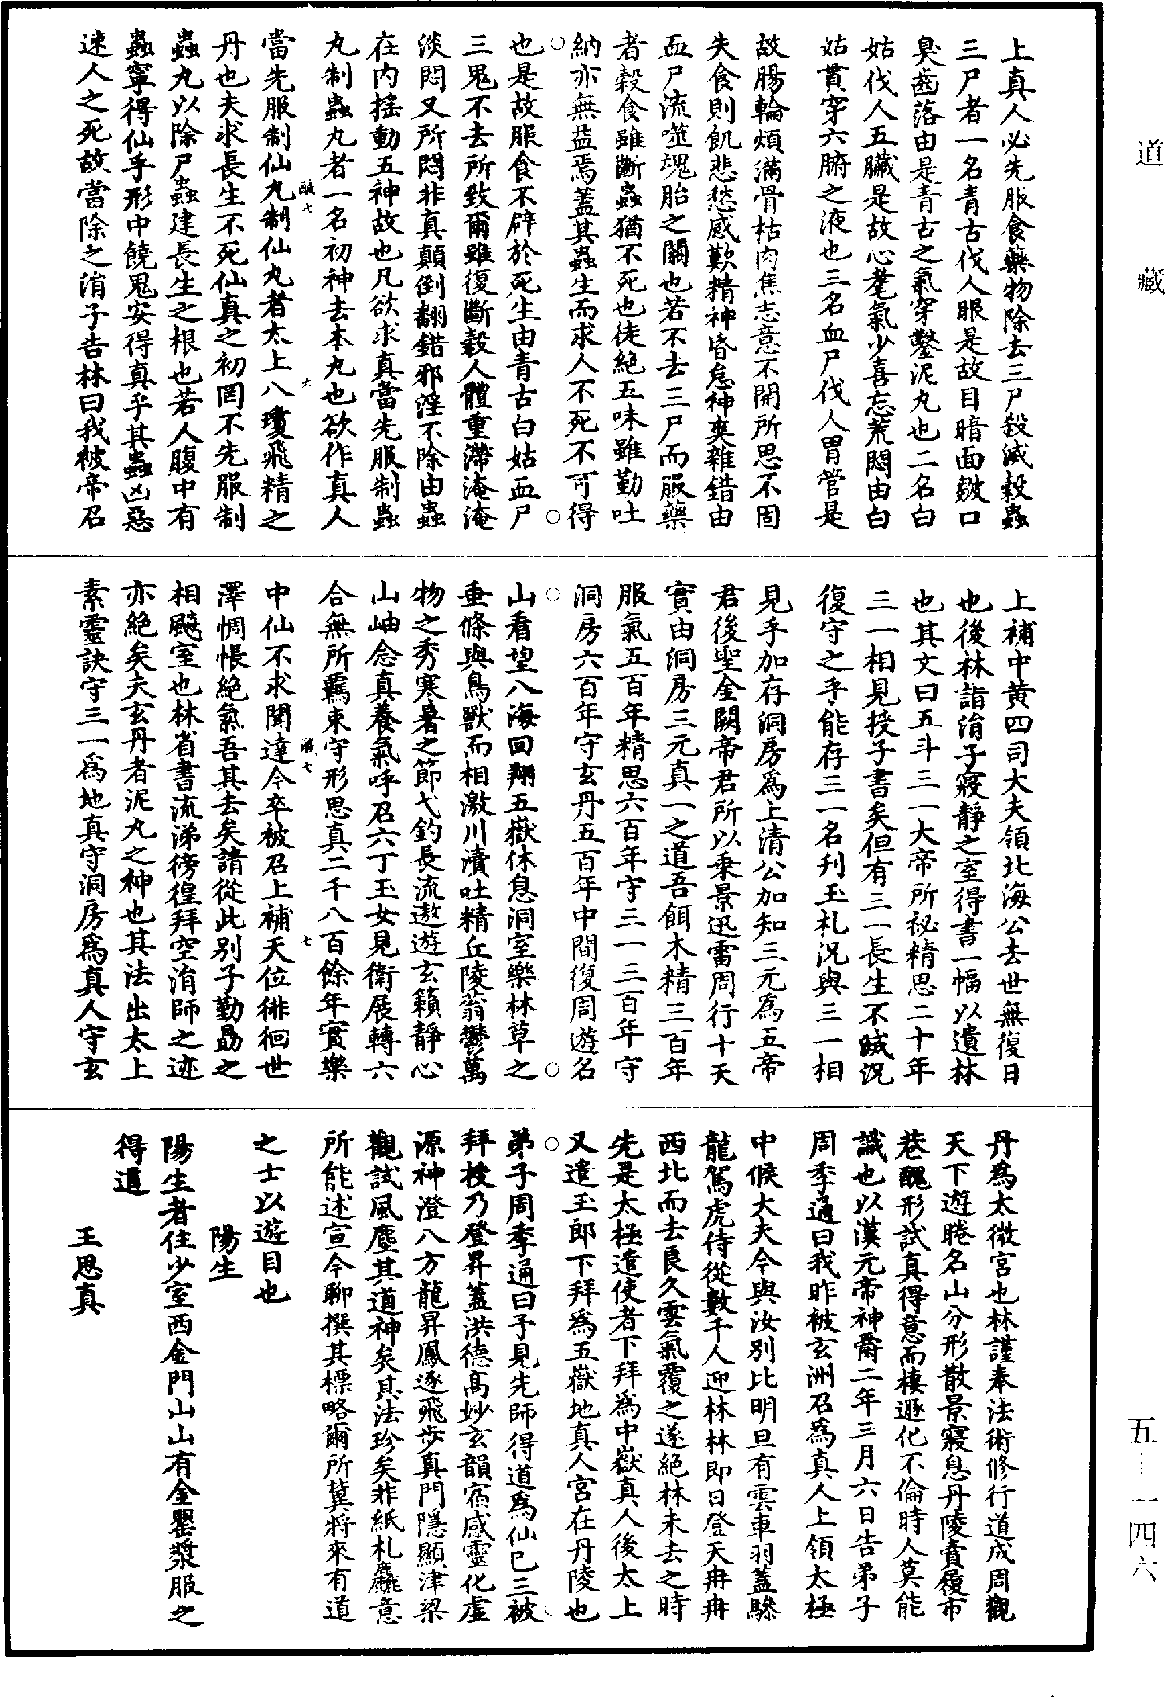 道藏
上真人必先服食藥物除去三尸殺滅穀蟲
三尸者一名青古伐人眼是故目暗面皺口
臭齒落由是青古之氣穿鑿泥丸也二名白
姑伐人五臟是故心耄氣少喜忘荒悶由白
姑貫穿六腑之液也三名血尸伐人胃管是
故腸輪煩滿骨枯肉焦志意不開所思不固
失食則飢悲愁感歎精神昏怠神爽雜錯由
血尸流噬魂胎之關也若不去三尸而服藥
者穀食雖斷蟲猶不死也徒絕五味雖勤吐
納亦無益焉蓋其蟲生而求人不死不可得
也是故服食不辟於死生由青古白姑血尸
三鬼不去所致爾雖復斷穀人體重滯淹淹
淡悶又所夢非真顛倒翻錯邪淫不除由蟲
在內搖動五神故也凡欲求真當先服制蟲
丸制蟲丸者一名初神去本丸也欲作真人
當先服制仙丸制仙丸者太上八瓊飛精之
丹也夫求長生不死仙真之初罔不先服制
蟲丸以除尸蟲建長生之根也若人腹中有
蟲寧得仙乎形中饒鬼安得真乎其蟲凶惡
速人之死故當除之涓子告林曰我被帝召
上補中黃四司大夫領北海公去世無復日
也後林詣涓子寢靜之室得書一幅以遺林
也其文曰五斗三一大帝所祕精思二十年
三一相見授子書矣但有三一長生不滅況
復守之乎能存三一名刊玉札況與三一相
見乎加存洞房為上清公加知三元為五帝
君後聖金闕帝君所以乘景迅雷周行十天
實由洞房三元真一之道吾餌朮精三百年
服氣五百年精思六百年守三一三百年守
洞房六百年守玄丹五百年中間復周遊名
山看望八海回翔五嶽休息洞室樂林草之
垂條與鳥獸而相激川瀆吐精丘陵蓊鬱萬
物之秀寒暑之節弋釣長流遨遊玄瀨靜心
山岫念真養氣呼召六丁玉女見衛展轉六
合無所羈束守形思真二千八百餘年實樂
中仙不求聞達今卒被召上補天位徘徊世
澤惆悵絕氣吾其去矣請從此別子勤勗之
相飈室也林省書流涕徬徨拜空涓師之迹
亦絕矣夫玄丹者泥丸之神也其法出太上
素靈訣守三一為地真守洞房為真人守玄
丹為太微宮也林謹奉法術修行道成周觀
天下遊睠名山分形散景寢息丹陵賣履市
巷醜形試真得意而棲遯化不倫時人莫能
識也以漢元帝神爵二年三月六日告弟子
周季通曰我昨被玄洲召為真人上領太極
中候大夫今與汝別比明旦有雲車羽蓋驂
龍駕虎侍從數千人迎林林即日登天冉冉
西北而去良久雲氣覆之遂絕林未去之時
先是太極遣使者下拜為中嶽真人後太上
又遣玉郎下拜為五嶽地真人宮在丹陵也
弟子周季通曰予見先師得道為仙已三被
拜授乃登昇蓋洪德高妙玄韻宿感靈化虛
源神澄八方龍昇鳳逐飛步真門隱顯津梁
觀試風塵其道神矣其法珍矣非紙札麤意
所能述宣今聊撰其標略爾所冀將來有道
之士以遊目也
陽生
陽生者住少室西金門山山有金罌漿服之
得道
王思真
五—一四六